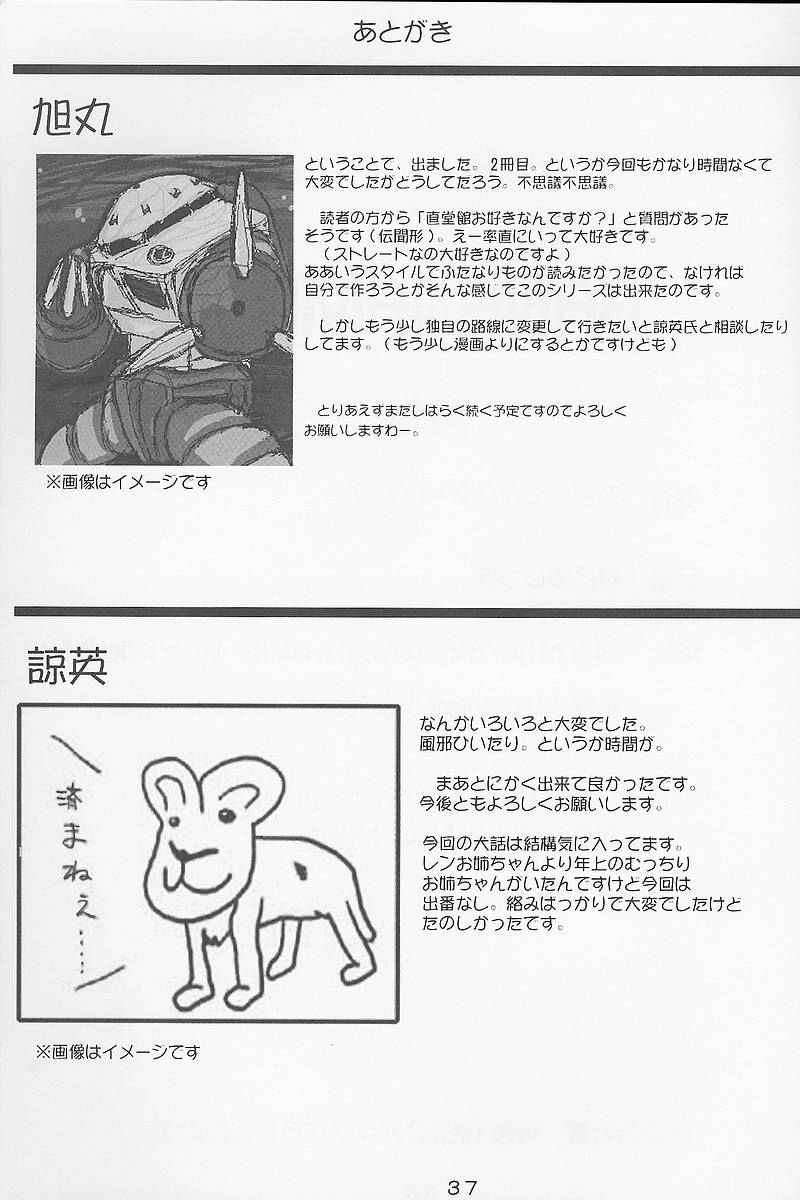 あとがき
旭丸
ということて、出ました。2冊目。というか今回もかなり時間なくて
大変でしたかどうしてたろう。不思議不思議。
読者の方から「直堂館お好きなんてすか？」と質問があった
そうです(伝聞形)。えー率直にいって大好きてす。
(ストレートなの大好きなのてすよ)
ああいうスタイルてふたなりものが読みたかったのて、なけれは
自分て作ろうとかそんな感してこのシリーズは出来たのてす。
しかしもう少し独自の路線に変更して行きたいと諒英氏と相談したり
してます。(もう少し漫画よりにするとかてすけとも)
とりあえすまたしはらく続く予定てすのてよろしく
お願いしますわー。
※画像はイメージてす
諒英
済まねえ……
なんかいろいろと大変てした。
風邪ひいたり。というか時間が。
まあとにかく出来て良かったてす。
今後ともよろしくお願いします。
今回の犬話は結構気に入ってます。
レンお姉ちゃんより年上のむっちり
お姉ちゃんがいたんてすけと今回は
出番なし。絡みはっかりて大変てしたけと
たのしかったてす。
※画像はイメージてす
37